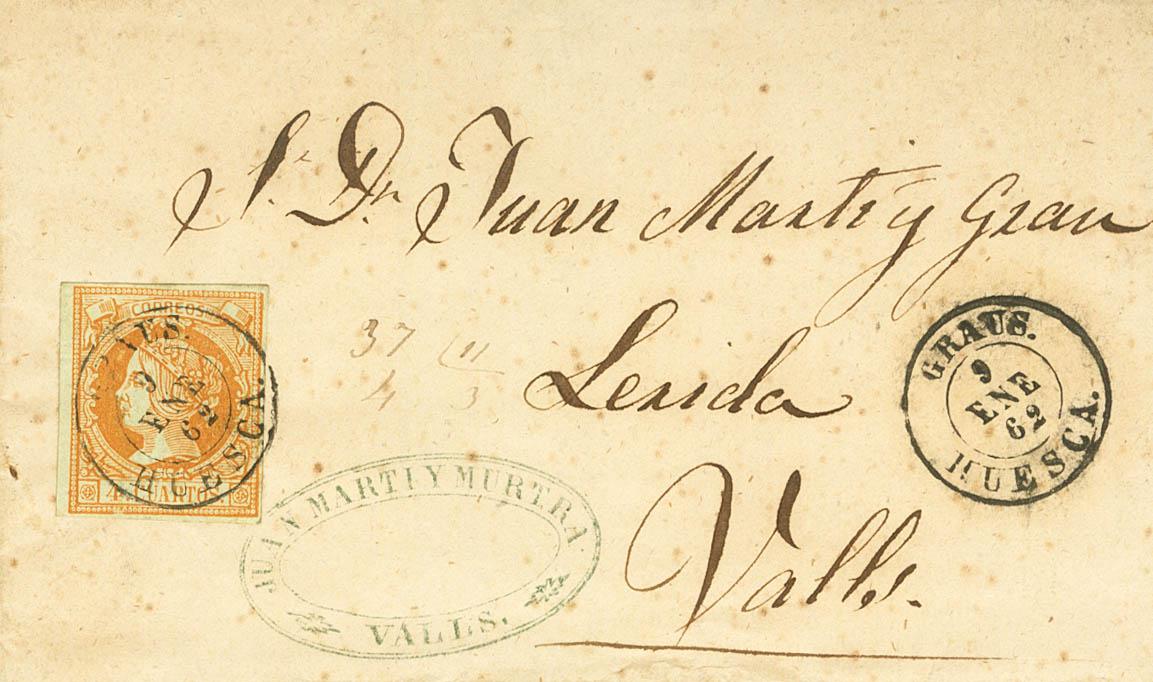 Sr. Dn Juan Marti y Grau
CORREOS
GRAUS.
9
ENE
62
HUESCA.
4 CUARTOS.
37 11
4 3
Lerida
GRAUS.
9
ENE
62
HUESCA.
JUAN MARTI Y MURTRA
VALLS.
Valls.